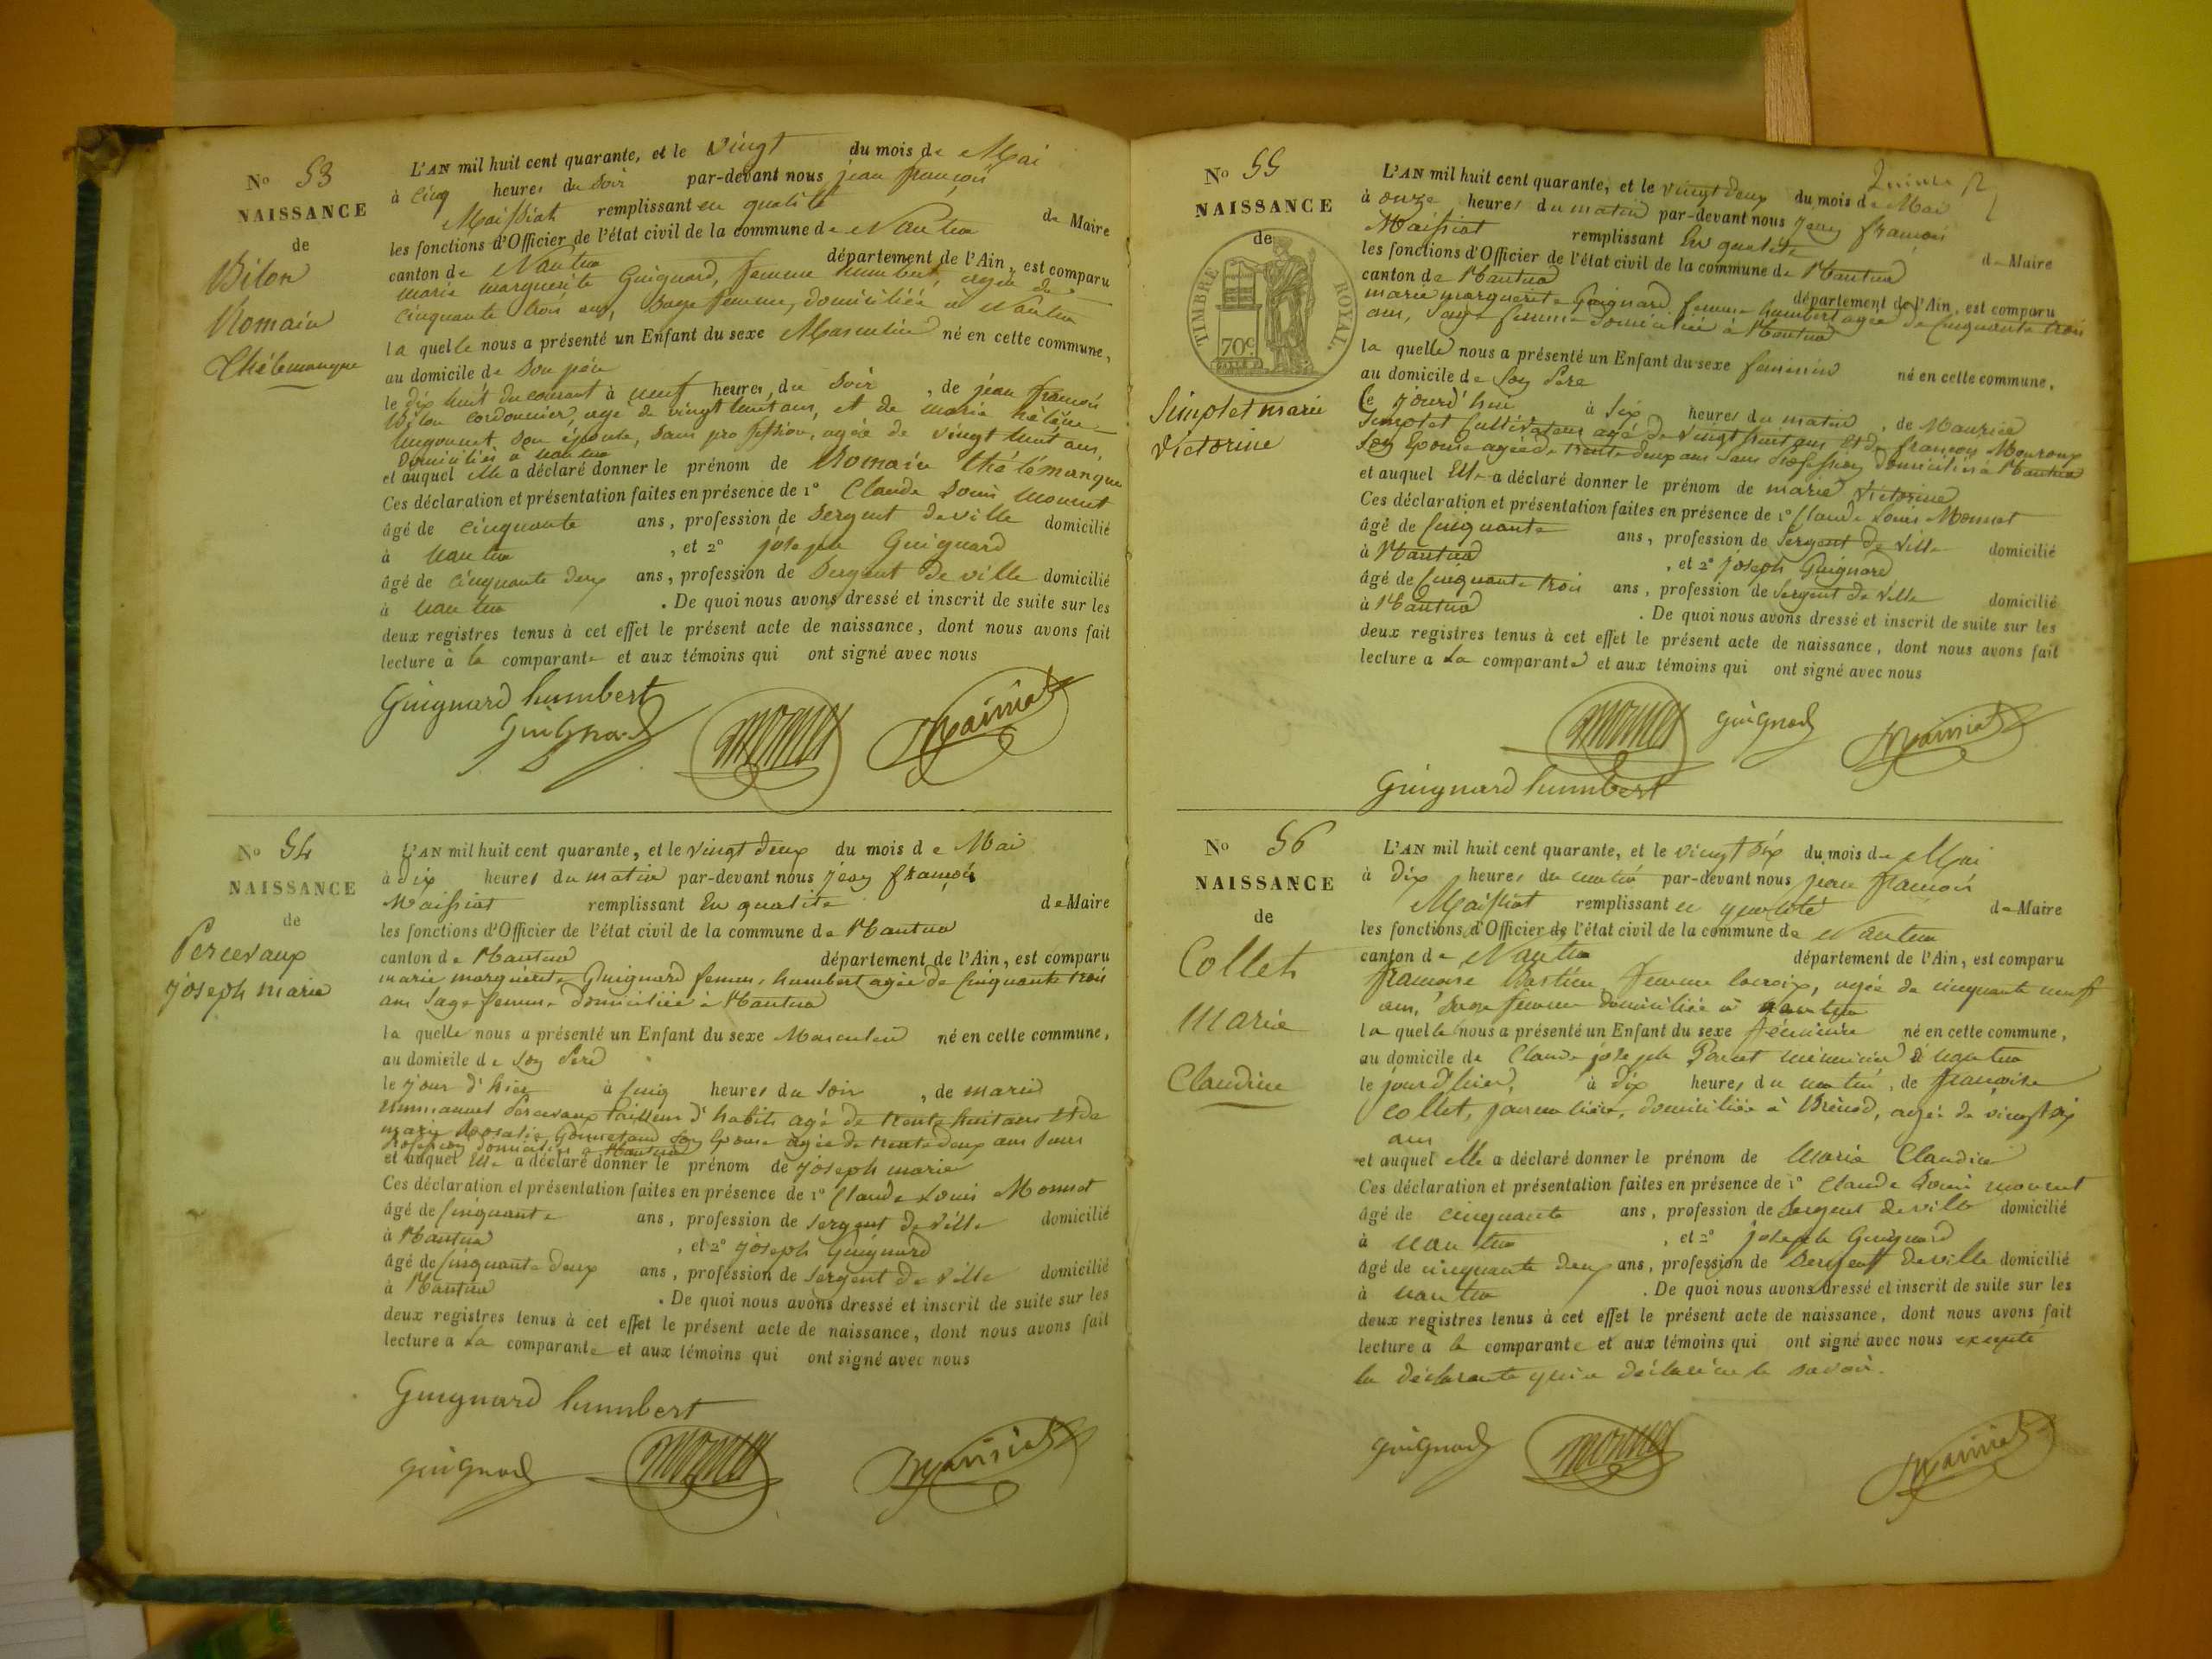 N° 53
NAISSANCE
de
Bilon
Romain
Thélemaque
L'AN mil huit cent quarante, et le vingt du mois de Mai
à cinq heures du soir par-devant nous jean françois
Maissiat remplissant en qualité de Maire
les fonctions d'Officier de l'état civil de la commune de Nantua
canton de Nantua département de l'Ain, est comparu
marie marguerite Guignard, femme humbert, agée de
cinquante trois ans, sage femme, domiciliée à Nantua
la quelle nous a présenté un Enfant du sexe Masculin né en cette commune,
au domicile de son père
le dix huit du courant à neuf heures du soir, de jean françois
Bilon cordonnier, agé de vingt huit ans, et de marie hélène
son épouse, sans profession, agée de vingt huit ans,
domiciliés à nantua
et auquel elle a déclaré donner le prénom de Romain thélémaque
Ces déclaration et présentation faites en présence de 1° Claude Louis Monnet
âgé de cinquante ans, profession de sergent de ville domicilié
à nantua, et 2° joseph Guignard
âgé de cinquante deux ans, profession de sergent de ville domicilié
à nantua. De quoi nous avons dressé et inscrit de suite sur les
deux registres tenus à cet effet le présent acte de naissance, dont nous avons fait
lecture à la comparante et aux témoins qui ont signé avec nous
Guignard humbert
Guignard Monnet Maissiat
N° 54
NAISSANCE
de
Percevaux
joseph marie
L'AN mil huit cent quarante, et le vingt deux du mois de Mai
à dix heures du matin par-devant nous jean françois
Maissiat remplissant en qualité de Maire
les fonctions d'Officier de l'état civil de la commune de Nantua
canton de Nantua département de l'Ain, est comparu
marie marguerite Guignard femme humbert agée de cinquante trois
ans sage femme domiciliée à Nantua
la quelle nous a présenté un Enfant du sexe Masculin né en cette commune,
au domicile de son Père
le jour d'hier à cinq heures du soir, de marie
emmanuel Percevaux tailleur d'habits agé de trente huit ans et de
marie Rosalie son épouse agée de trente deux ans sans
profession domiciliés à Nantua
et auquel Elle a déclaré donner le prénom de joseph marie
Ces déclaration et présentation faites en présence de 1° Claude Louis Monnet
âgé de cinquante ans, profession de sergent de ville domicilié
à Nantua, et 2° joseph Guignard
âgé de cinquante deux ans, profession de sergent de ville domicilié
à Nantua. De quoi nous avons dressé et inscrit de suite sur les
deux registres tenus à cet effet le présent acte de naissance, dont nous avons fait
lecture a La comparante et aux témoins qui ont signé avec nous
Guignard humbert
Guignard Monnet Maissiat
N° 55
NAISSANCE
de
TIMBRE ROYAL.
70c
Simplet marie
Victorine
L'AN mil huit cent quarante, et le vingt deux du mois de Mai
à onze heures du matin par-devant nous jean françois
Maissiat remplissant En qualité de Maire
les fonctions d'Officier de l'état civil de la commune de Nantua
canton de Nantua département de l'Ain, est comparu
marie marguerite Guignard femme humbert agée de cinquante trois
ans, sage femme domiciliée à Nantua
la quelle nous a présenté un Enfant du sexe feminin né en cette commune,
au domicile de son Père
Ce jourd'hui à six heures du matin, de Maurice
Simplet Cultivateur agé de vingt huit ans et de
son Epouse agée de trente deux ans sans Profession domiciliés à Nantua
et auquel Elle a déclaré donner le prénom de marie Victorine
Ces déclaration et présentation faites en présence de 1° Claude Louis Monnet
âgé de Cinquante ans, profession de Sergent de Ville domicilié
à Nantua, et 2° joseph Guignard
âgé de Cinquante trois ans, profession de Sergent de Ville domicilié
à Nantua. De quoi nous avons dressé et inscrit de suite sur les
deux registres tenus à cet effet le présent acte de naissance, dont nous avons fait
lecture a La comparante et aux témoins qui ont signé avec nous
Monnet Guignard Maissiat
Guignard humbert
N° 56
NAISSANCE
de
Collet
Marie
Claudine
L'AN mil huit cent quarante, et le vingt six du mois de Mai
à dix heures du matin par-devant nous jean françois
Maissiat remplissant en qualité de Maire
les fonctions d'Officier de l'état civil de la commune de Nantua
canton de Nantua département de l'Ain, est comparu
françoise femme lacroix, agée de cinquante neuf
ans, sage femme domiciliée à nantua
la quelle nous a présenté un Enfant du sexe féminin né en cette commune,
au domicile de Claude joseph à nantua
le jour d'hier, à dix heures du matin, de françoise
Collet, journalière, domiciliée à Brénod, agée de vingt six
ans
et auquel elle a déclaré donner le prénom de Marie Claudine
Ces déclaration et présentation faites en présence de 1° Claude Louis monnet
âgé de cinquante ans, profession de sergent de ville domicilié
à nantua, et 2° joseph Guignard
âgé de cinquante deux ans, profession de sergent de ville domicilié
à nantua. De quoi nous avons dressé et inscrit de suite sur les
deux registres tenus à cet effet le présent acte de naissance, dont nous avons fait
lecture à la comparante et aux témoins qui ont signé avec nous excepté
la déclarante qui a déclaré ne le savoir.
Guignard Monnet Maissiat